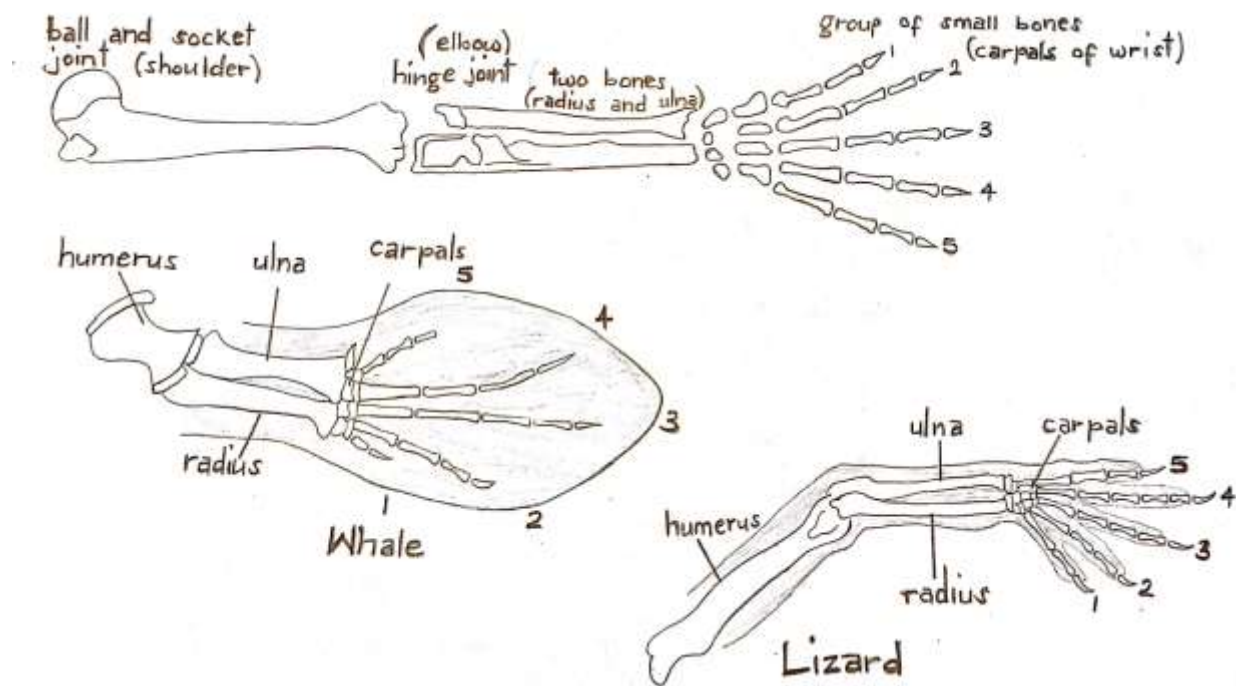 ball and socket
joint (shoulder)
(elbow)
hinge joint
two bones
(radius and ulna)
group of small bones
(carpals of wrist)
1
2
3
4
5
humerus
ulna
carpals
5
4
3
radius
1
2
Whale
ulna
carpals
5
4
humerus
3
radius
2
1
Lizard